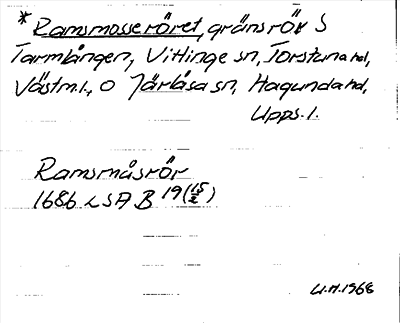 * Ramsmosseröret, gränsrör S
Tarmlången, Vittinge sn, Torstuna hd,
Västm.l., o Järlåsa sn, Hagunda hd,
Upps. l.
Ramsmåsrör
1686 LSA B 19 (15/2)
U.H. 1968